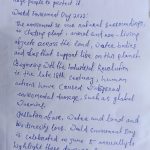 large people to protect it.
World Environment Day 2022:
The environment is our natural surroundings,
consisting plants, animals and non-living
objects across the land, water bodies
and gas that support life on the planet.
Beginning with the Industrial Revolution
in the late 18th century, human
actions have caused widespread
environmental damage, such as global
warming,
Pollution of air, water and land and
biodiversity loss. World Environment Day
is celebrated on June 5 annually
highlight these